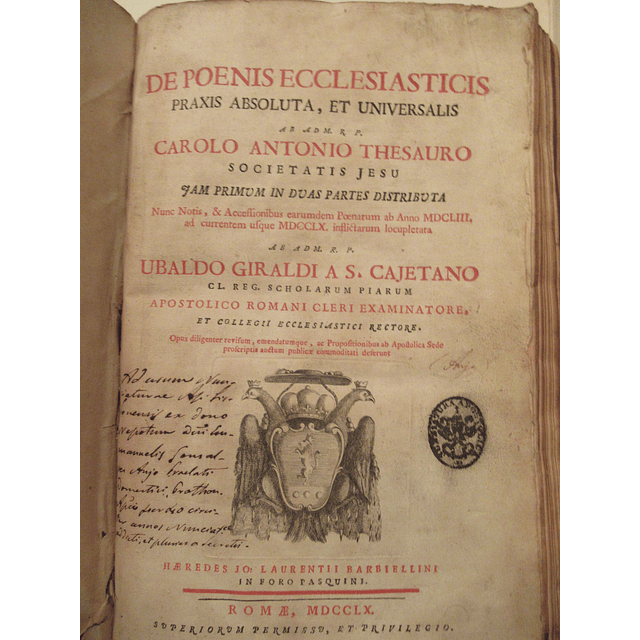 DE POENIS ECCLESIASTICIS
PRAXIS ABSOLUTA, ET UNIVERSALIS
AB ADM. R. P.
CAROLO ANTONIO THESAURO
SOCIETATIS JESU
JAM PRIMUM IN DUAS PARTES DISTRIBUTA
Nunc Notis, & Accessionibus earumdem Pœnarum ab Anno MDCLIII,
ad currentem usque MDCCLX. inflictarum locupletata
AB ADM. R. P.
UBALDO GIRALDI A S. CAJETANO
CL. REG. SCHOLARUM PIARUM
APOSTOLICO ROMANI CLERI EXAMINATORE,
ET COLLEGII ECCLESIASTICI RECTORE.
Opus diligenter revisum, emendatumque, ac Propositionibus ab Apostolica Sede
proscriptis auctum publicæ commoditati deferunt
Ad usum
ex dono
annos
HÆREDES JO: LAURENTII BARBIELLINI
IN FORO PASQUINI.
ROMÆ, MDCCLX.
SUPERIORUM PERMISSU, ET PRIVILEGIO.